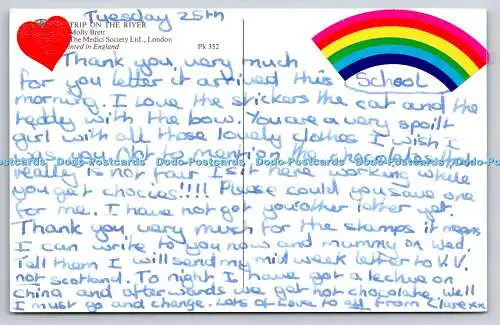 Tuesday 25th
TRIP ON THE RIVER
Molly Brett
The Medici Society Ltd., London
Printed in England
PK 352
School
Thank you, very much
for you letter it arrived this
morning. I Love the stickers the cat and the
teddy with the bow. You are a very spoilt
girl with all those lovely clothes I wish I
was you. Not to mention the
really is not fair I sit here working while
you get choccies!!!! Please could you save one
for me. I have not got your other letter yet.
Thank you, very much for the stamps it means
I can write to you now and mummy on Wed.
Tell them I will send my mid week letter to V.V.
not scotland. To night I have got a lecture on
china and afterwards we get hot chocolate. Well
I must go and change. Lots of Love to all from Clare xx
Dodo-Postcards Dodo-Postcards Dodo-Postcards Dodo-Postcards Dodo-Postcards Dodo-Postcards